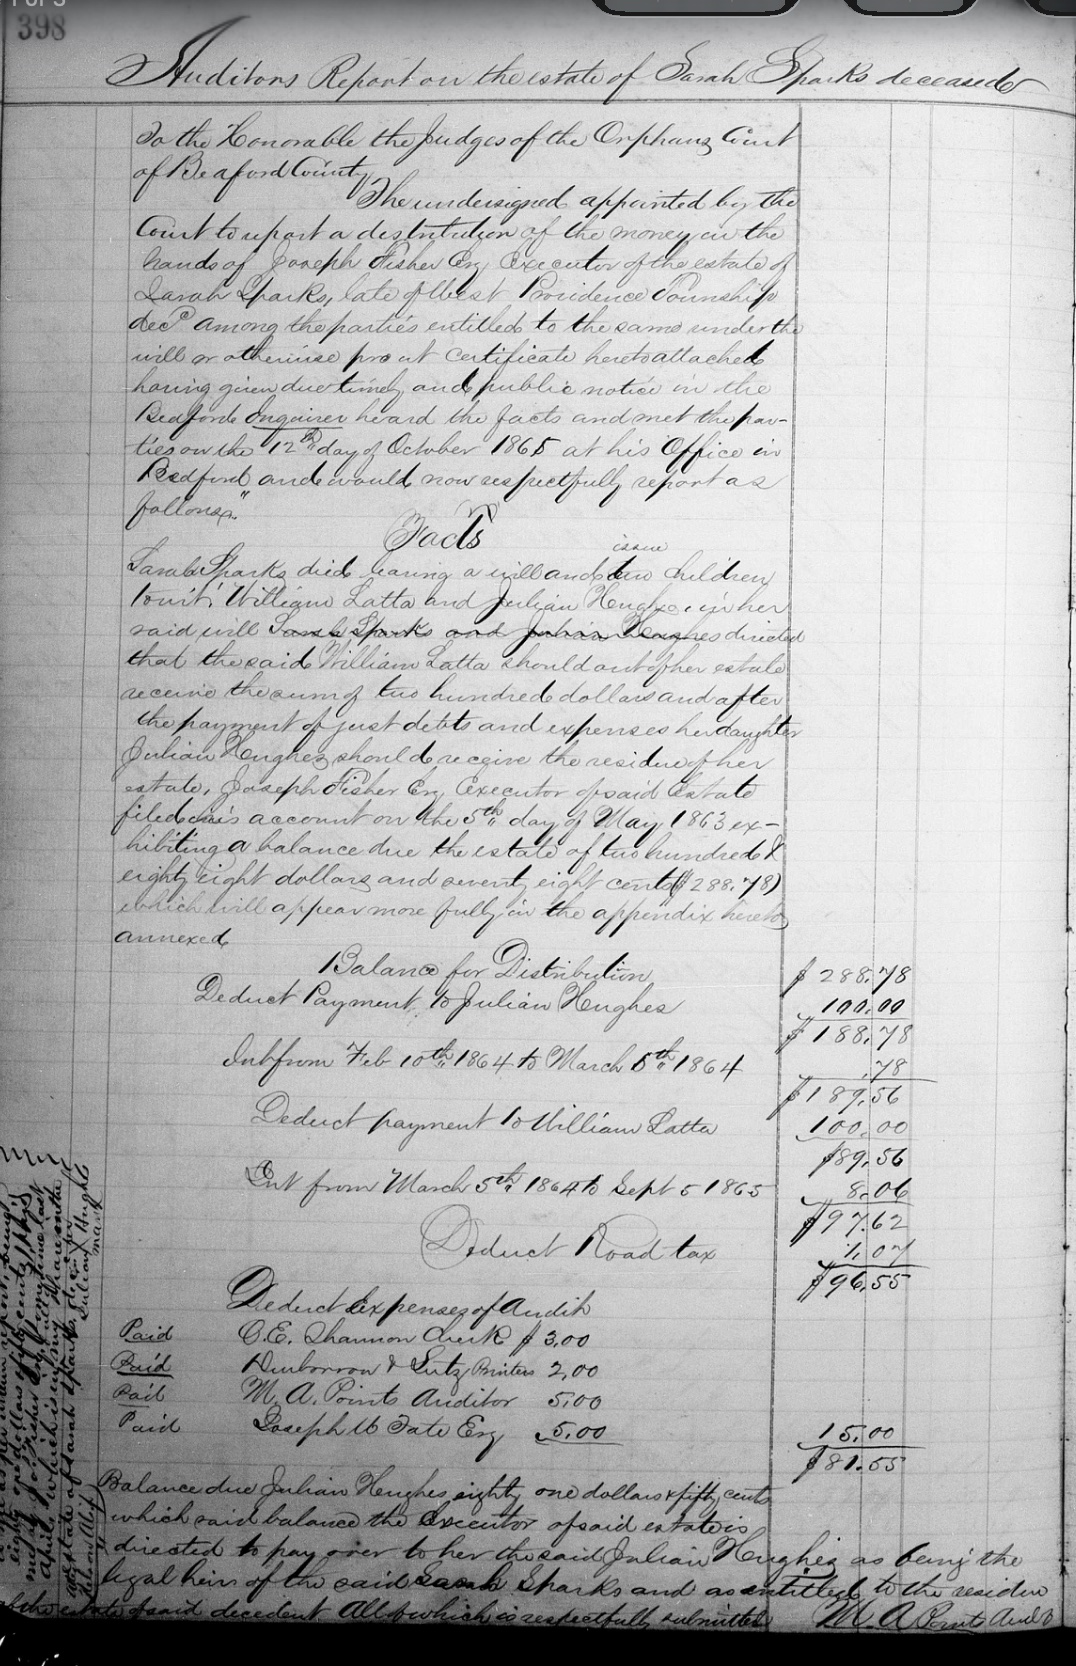 398
Auditors Report on the estate of Sarah Sparks deceased
To the Honorable the Judges of the Orphans Court
of Beaford County
The undersigned appointed by the
Court to report a distribution of the money in the
hands of Joseph Fisher Esq Executor of the estate of
Sarah Sparks, late of West Providence Township
decd among the parties entitled to the same under the
will or otherwise pro ut certificate hereto attached
having given due timely and public notice in the
Bedford Inquirer heard the facts and met the par-
ties on the 12th day of October 1865 at his Office in
Bedford and would now respectfully report as
follows,"
Facts
issue
Sarah Sparks died leaving a will and two children
towit; William Latta and Julian Hughes in her
said will Sarah Sparks and Julian Hughes directed
that the said William Latta should out of her estate
receive the sum of two hundred dollars and after
the payment of just debts and expenses her daughter
Julian Hughes should receive the residue of her
estate, Joseph Fisher Esq Executor of said Estate
filed his account on the 5th day of May 1863 ex-
hibiting a balance due the estate of two hundred &
eighty eight dollars and seventy eight cents ($288.78)
which will appear more fully in the appendix hereto
annexed
Balance for Distribution $288.78
Deduct Payment to Julian Hughes 100.00
$188.78
Int from Feb 10th 1864 to March 5th 1864 .78
$189.56
Deduct payment to William Latta 100.00
$89.56
Int from March 5th 1864 to Sept 5 1865 8.06
$97.62
Deduct Road tax 1.07
$96.55
Deduct Expenses of Audit
Paid O.E. Shannon Clerk $3.00
Paid Durborrow & Lutz Printers 2.00
Paid M. A. Points Auditor 5.00
Paid Joseph W Tate Esq 5.00 15.00
$81.55
Balance due Julian Hughes eighty one dollars & fifty cents
which said balance the Executor of said estate is
directed to pay over to her the said Julian Hughes as being the
legal heirs of the said Sarah Sparks and as entitled to the residue
of the estate of said decedent All of which is respectfully submitted M. A Points Aud